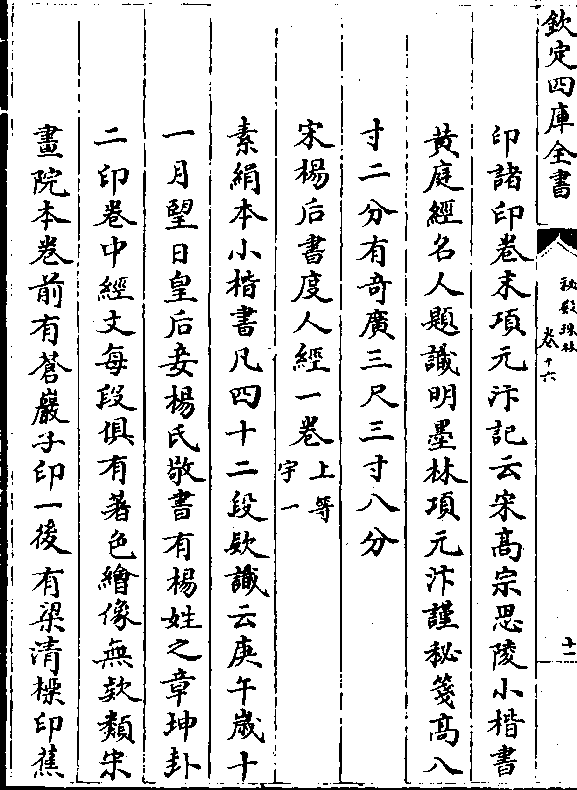 欽定四庫全書
秘殿珠林
卷十六
十二
印諸印卷末項元汴記云宋髙宗思陵小楷書
黄庭經名人題識明墨林項元汴謹秘箋髙八
寸二分有奇廣三尺三寸八分
宋楊后書度人經一卷上等
宇一
素絹本小楷書凡四十二段欵識云庚午嵗十
一月朢日皇后妾楊氏敬書有楊姓之章坤卦
二印卷中經文每段俱有著色繪像無欵類宋
畫院本卷前有蒼巖子印一後有梁清標印蕉